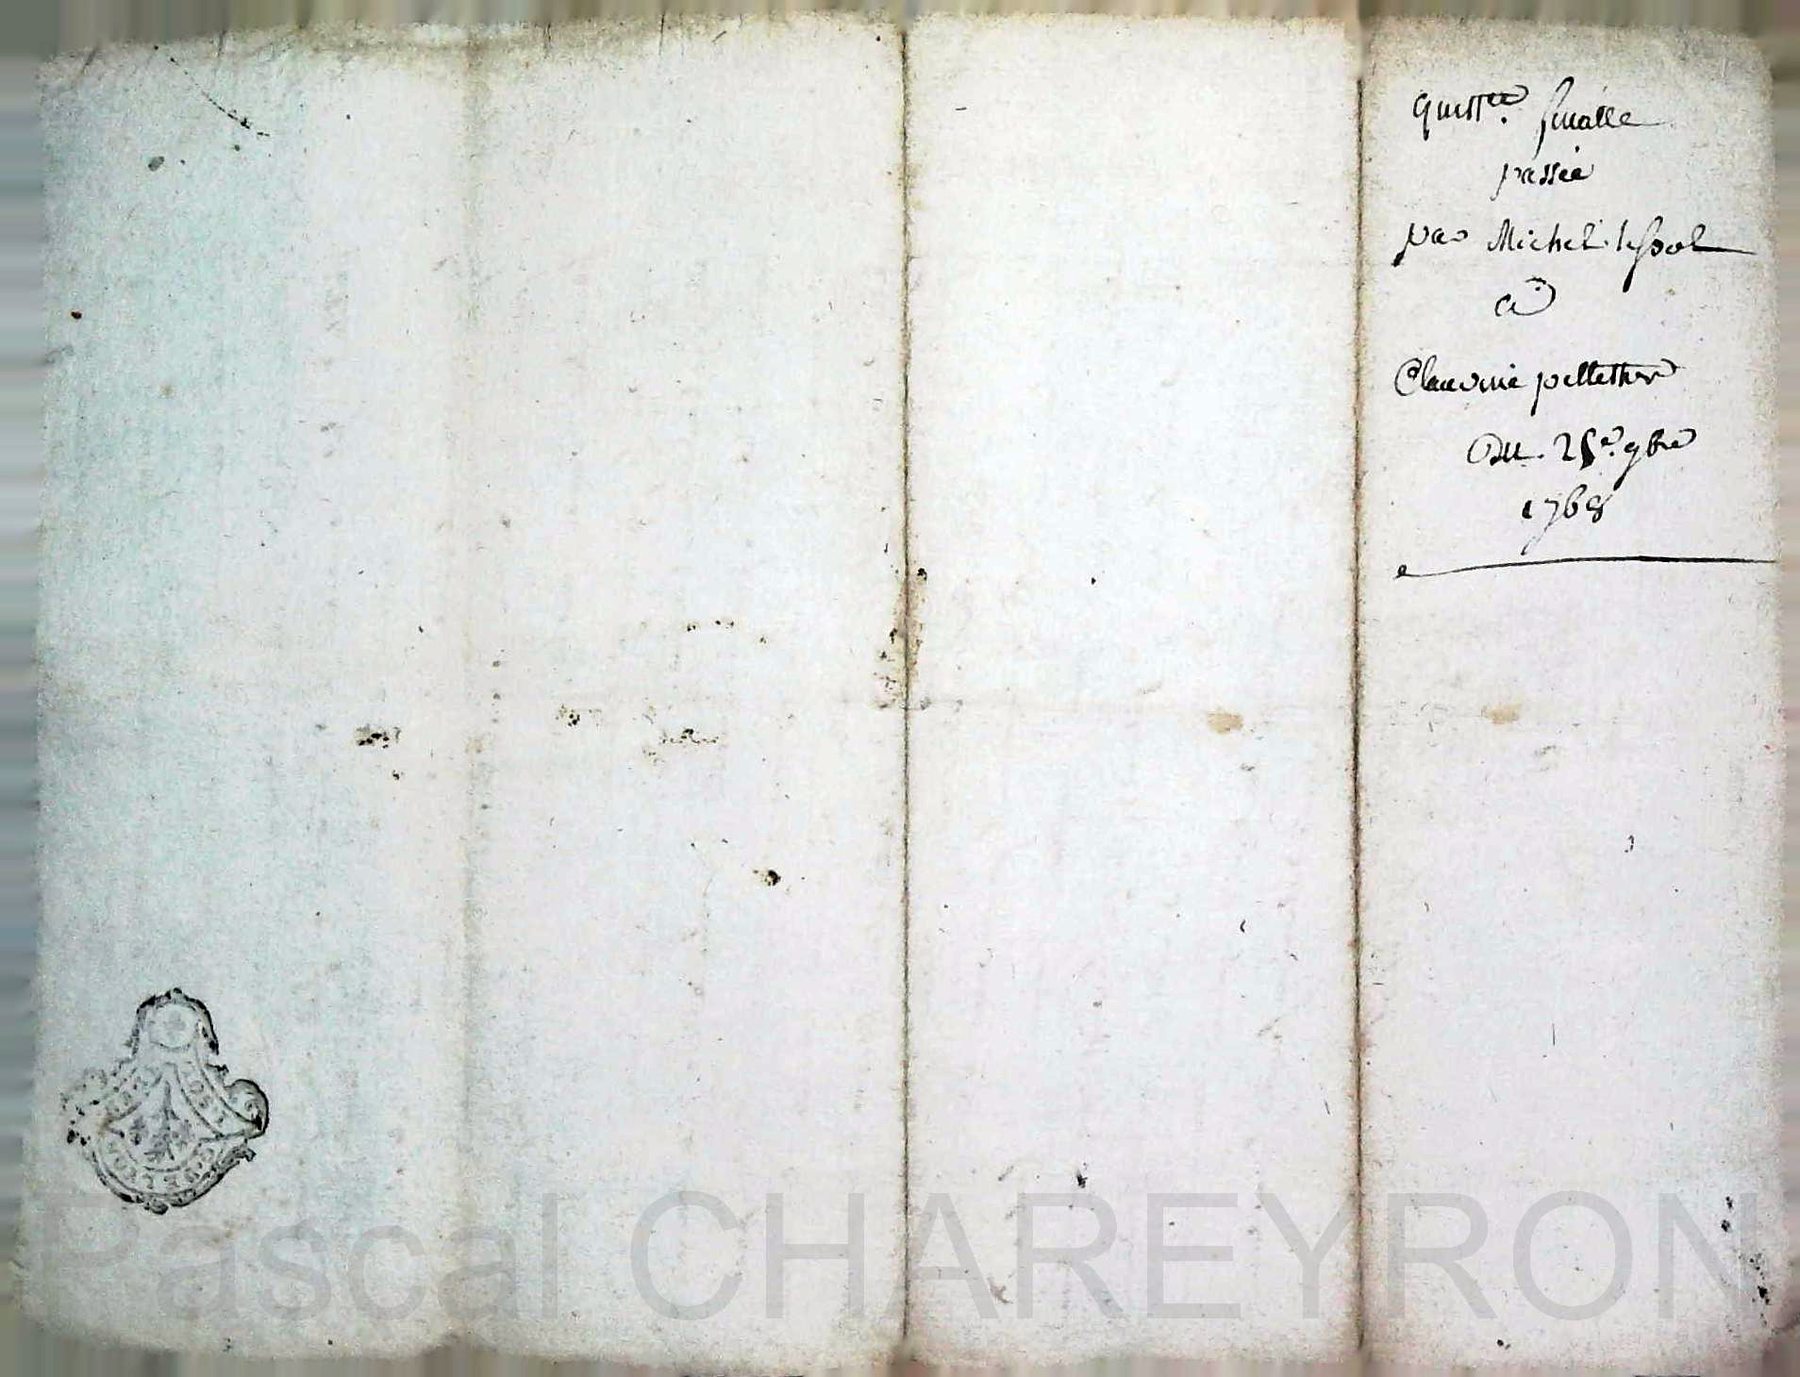 Quitt.ce finalle
passée
par Michel
à
Claudine pelletier
Du 25e 9bre
1768
Pascal CHAREYRON